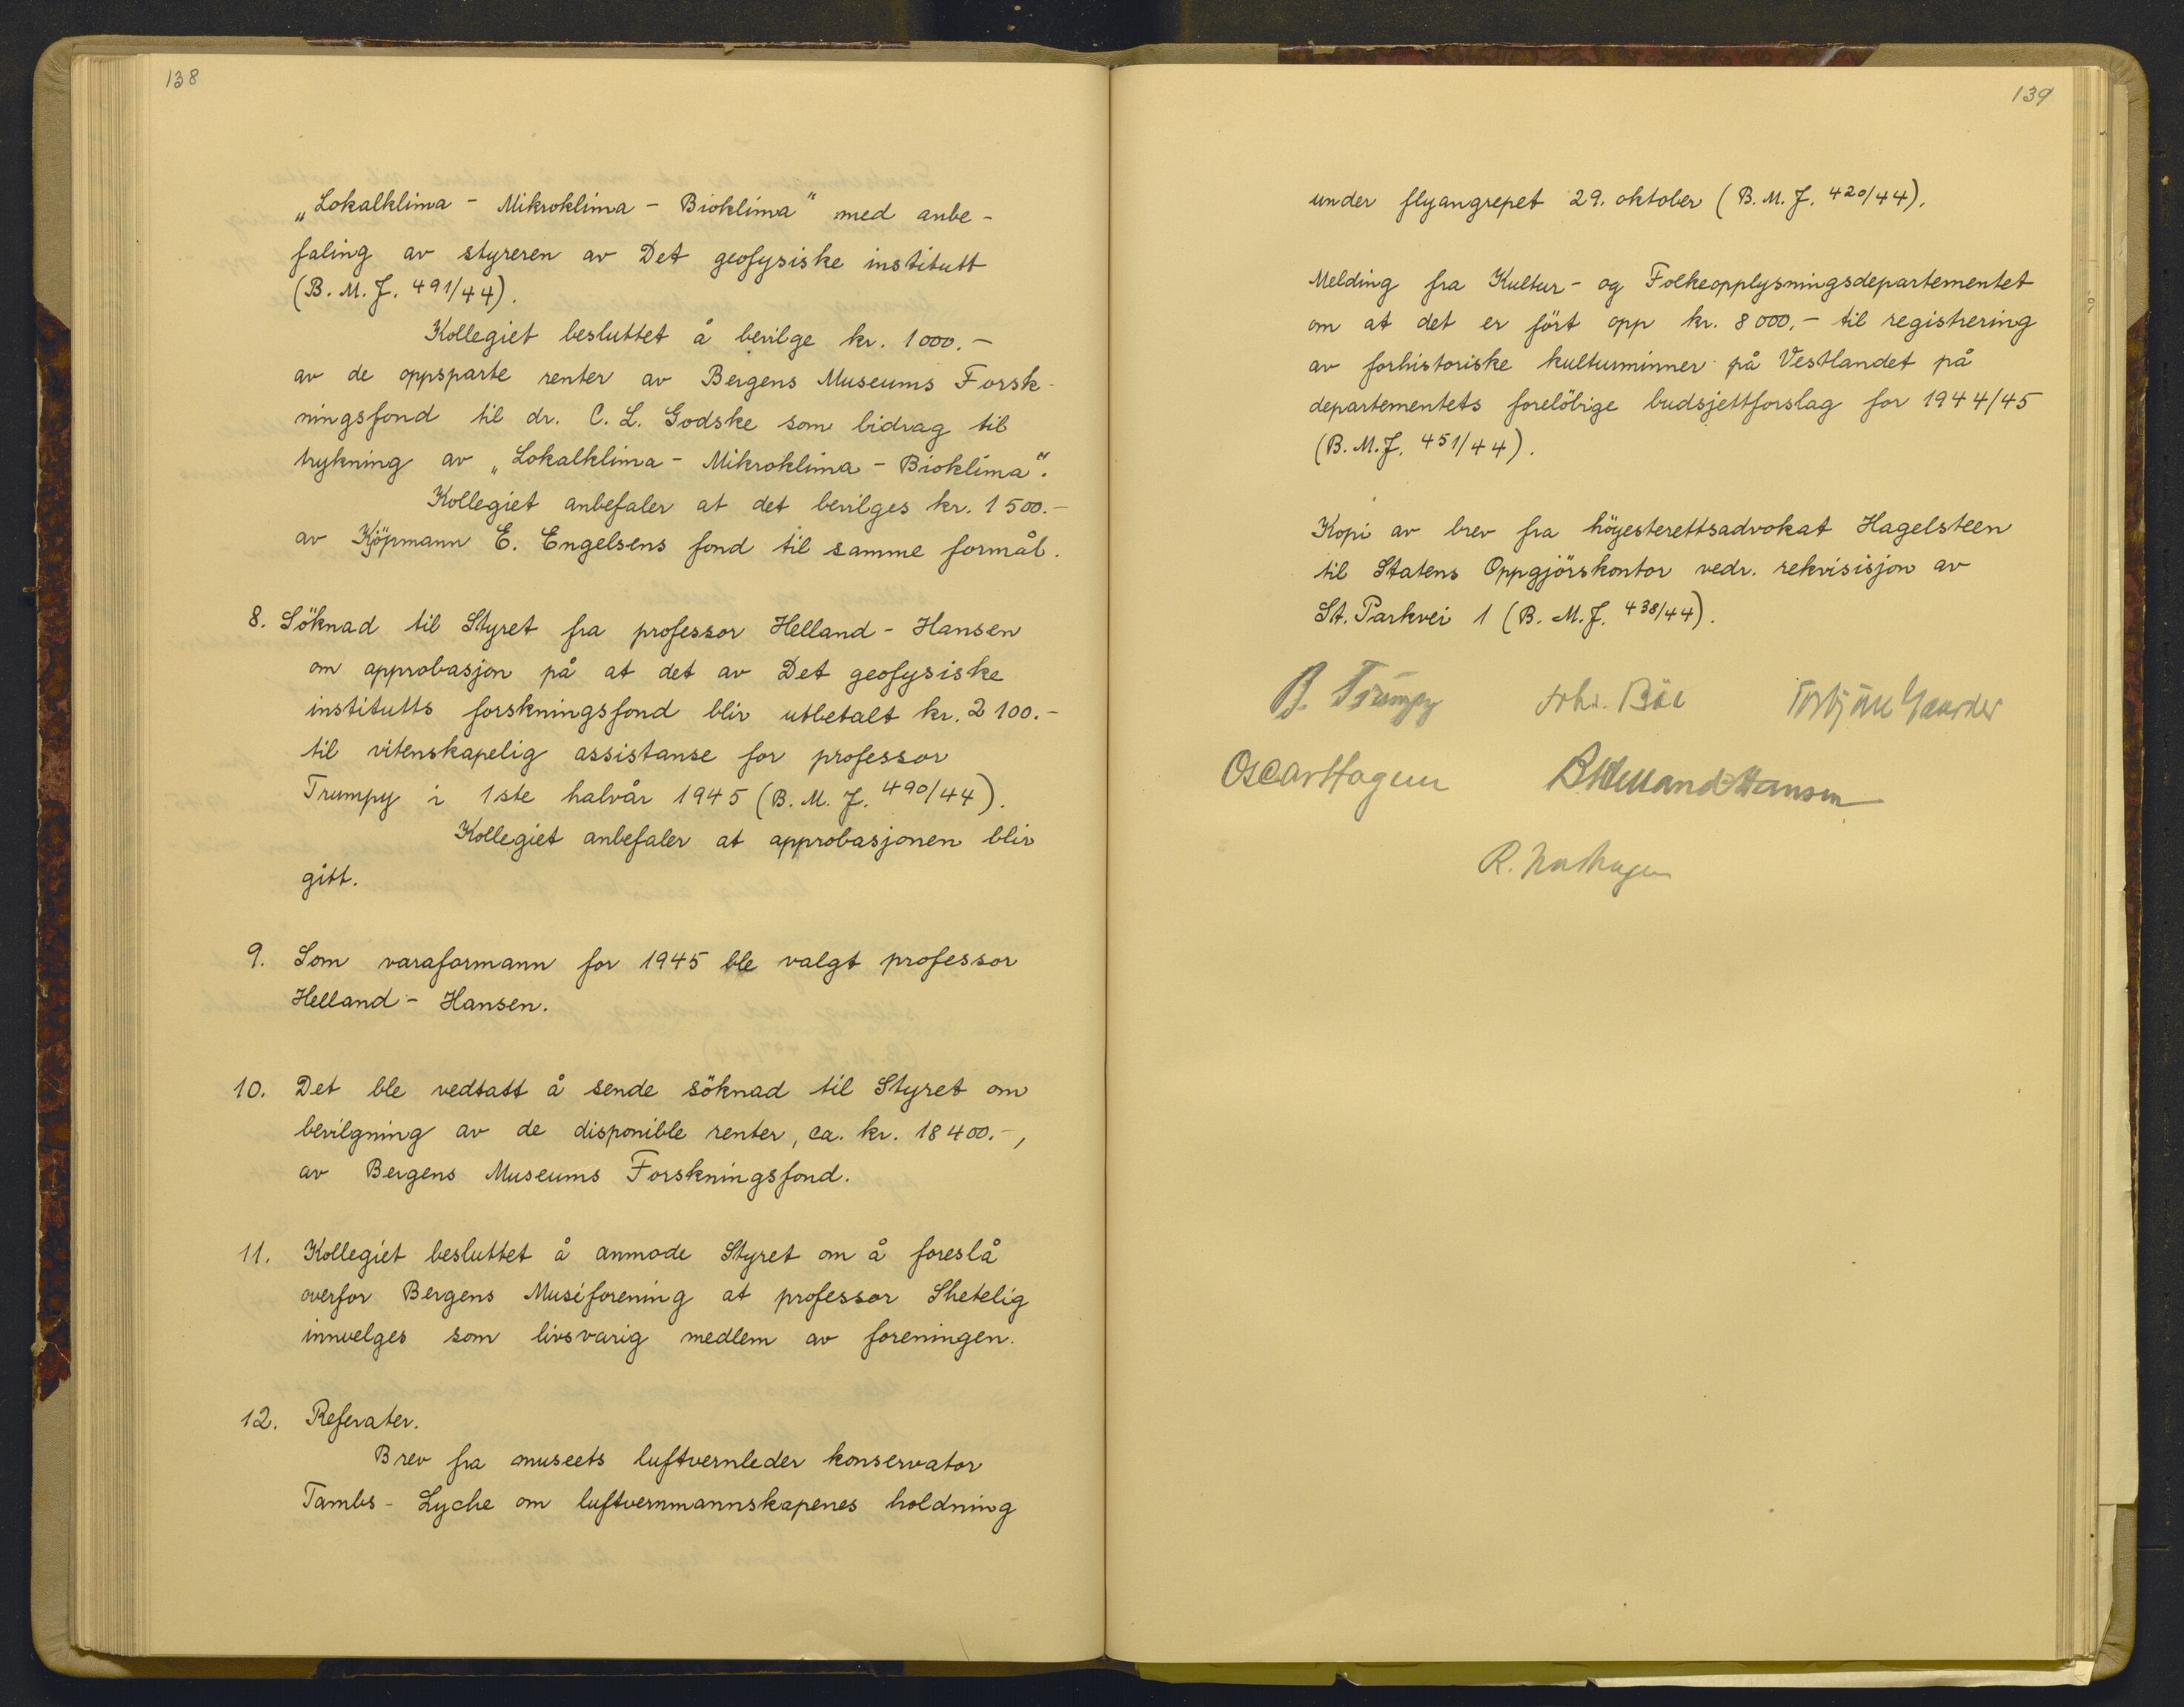 138
„Lokalklima - Mikroklima - Bioklima" med anbe-
faling av styreren av Det geofysiske institutt
(B. M. J. 491/44).
Kollegiet besluttet å bevilge kr. 1000.-
av de oppsparte renter av Bergens Museums Forsk-
ningsfond til dr. C. L. Godske som bidrag til
trykning av „Lokalklima - Mikroklima - Bioklima".
Kollegiet anbefaler at det bevilges kr. 1500.-
av Kjöpmann E. Engelsens fond til samme formål.
8. Söknad til Styret fra professor Helland-Hansen
om approbasjon på at det av Det geofysiske
institutts forskningsfond blir utbetalt kr. 2100.-
til vitenskapelig assistanse for professor
Trumpy i 1ste halvår 1945 (B. M. J. 490/44).
Kollegiet anbefaler at approbasjonen blir
gitt.
9. Som varaformann for 1945 ble valgt professor
Helland-Hansen.
10. Det ble vedtatt å sende söknad til Styret om
bevilgning av de disponible renter, ca. kr. 18400.-,
av Bergens Museums Forskningsfond.
11. Kollegiet besluttet å anmode Styret om å foreslå
overfor Bergens Museiforening at professor Shetelig
innvelges som livsvarig medlem av foreningen.
12. Referater.
Brev fra museets luftvernleder konservator
Tambs-Lyche om luftvernmannskapenes holdning
139
under flyangrepet 29. oktober (B. M. J. 420/44).
Melding fra Kultur- og Folkeopplysningsdepartementet
om at det er fört opp kr. 8000,- til registrering
av forhistoriske kulturminner på Vestlandet på
departementets forelöbige budsjettforslag for 1944/45
(B. M. J. 451/44).
Kopi av brev fra höyesterettsadvokat Hagelsteen
til Statens Oppgjörskontor vedr. rekvisisjon av
St. Parkvei 1 (B. M. J. 438/44).
B. Trumpy Joh. Böe Torbjörn Gaarder
Oscar Hagem B Helland-Hansen
R.